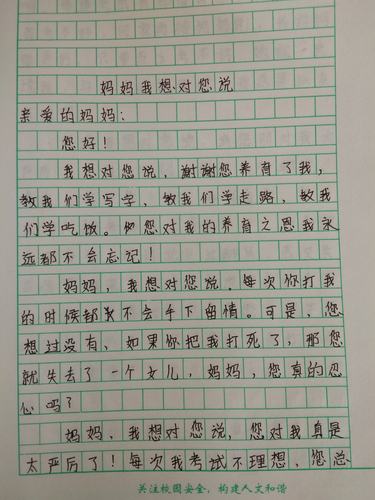 妈妈我想对您说
亲爱的妈妈:
您好!
我想对您说,谢谢您养育了我,
教我们学写字,教我们学走路,教我
们学吃饭。您对我的养育之恩我永
远都不会忘记!
妈妈,我想对您说,每次你打我
的时候都不会手下留情。可是,您
想过没有、如果你把我打死了,那您
就失去了一个女儿,妈妈,您真的忍
心吗?
妈妈,我想对您说,您对我真是
太严厉了!每次我考试不理想,您总
关注校园安全,构建人文和谐